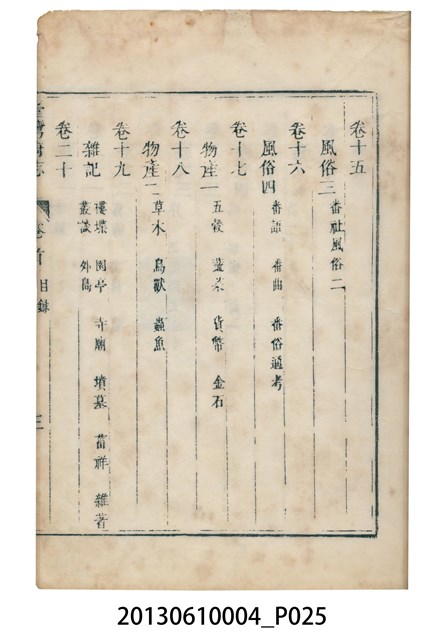 卷十五
風俗三 番社風俗二
卷十六
風俗四 番語 番曲 番俗通考
卷十七
物產一 五穀 蔬菜 貨幣 金石
卷十八
物產二 草木 鳥獸 蟲魚
卷十九
雜記 樓堞 園亭 寺廟 墳墓 菑祥 雜著
叢談 外島
卷二十
臺灣府志 卷首 目錄 三
20130610004_P025